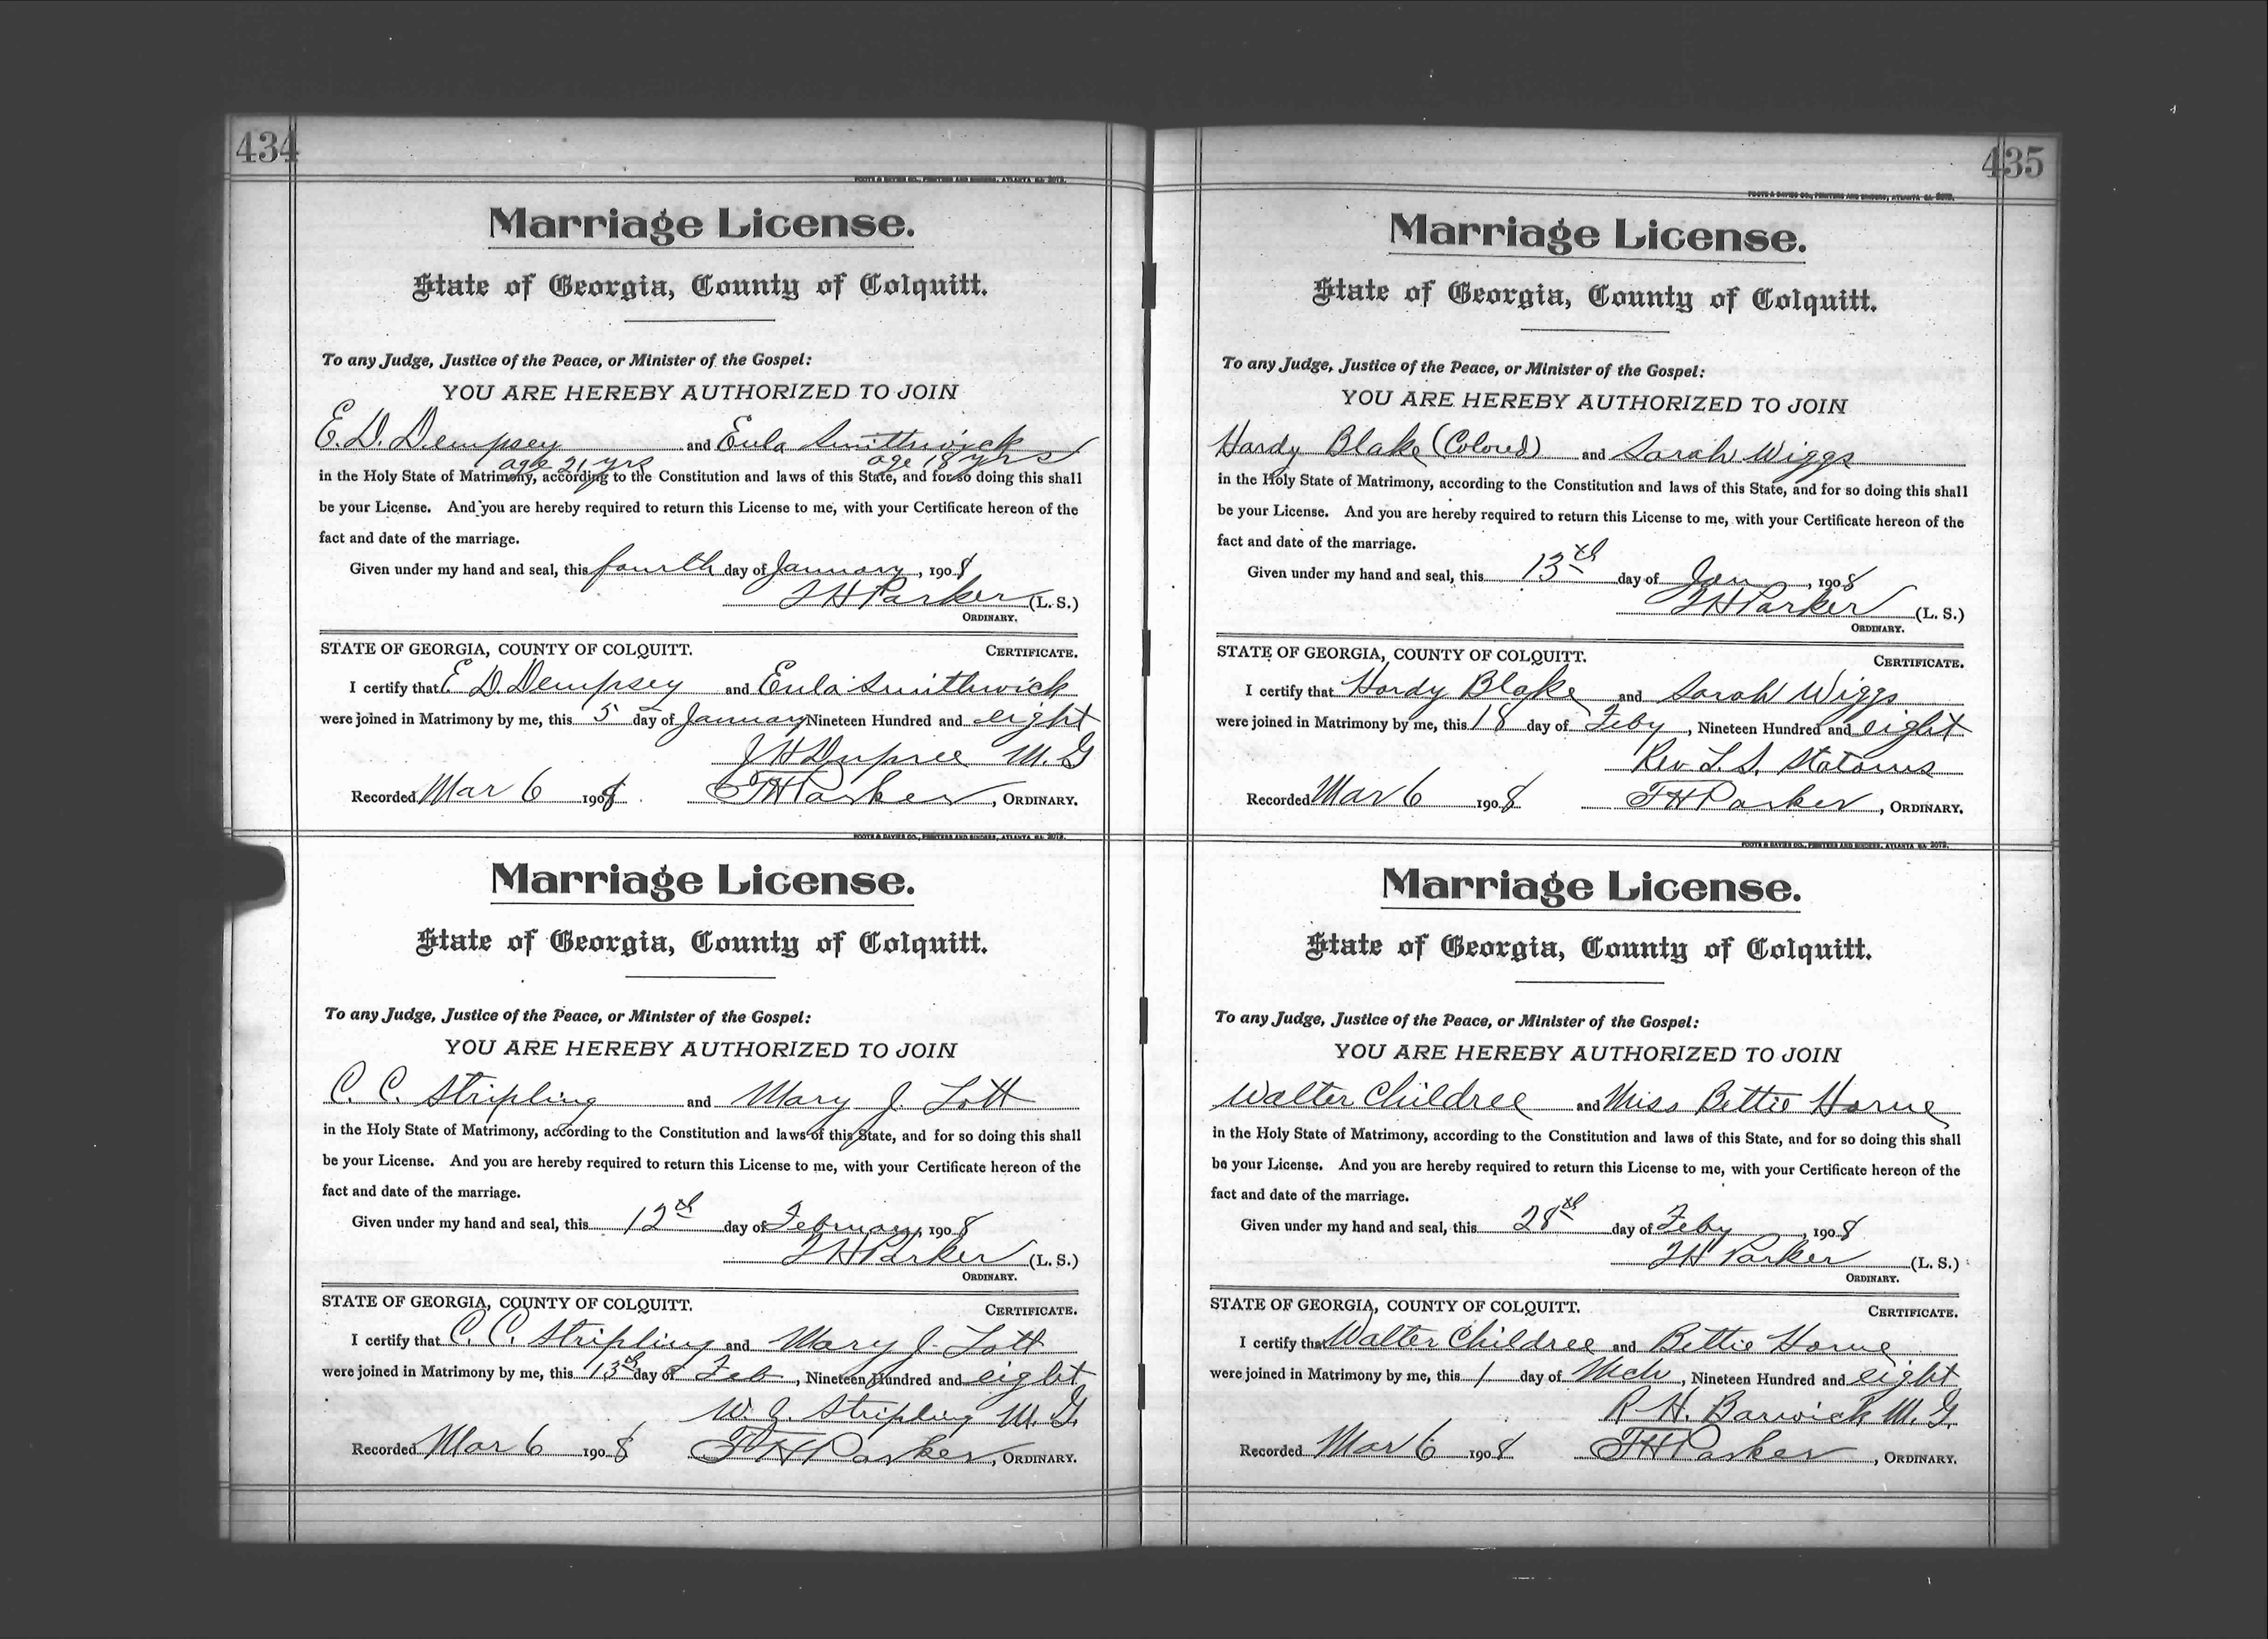 434
FOOTE & DAVIES CO., PRINTERS AND BINDERS, ATLANTA GA. 2072.
Marriage License.
State of Georgia, County of Colquitt.
To any Judge, Justice of the Peace, or Minister of the Gospel:
YOU ARE HEREBY AUTHORIZED TO JOIN
E. D. Dempsey and Eula Smithwick
age 21 yrs age 18 yrs
in the Holy State of Matrimony, according to the Constitution and laws of this State, and for so doing this shall
be your License. And you are hereby required to return this License to me, with your Certificate hereon of the
fact and date of the marriage.
Given under my hand and seal, this fourth day of January, 1908
T H Parker (L. S.)
ORDINARY.
STATE OF GEORGIA, COUNTY OF COLQUITT. CERTIFICATE.
I certify that E D. Dempsey and Eula Smithwick
were joined in Matrimony by me, this 5 day of January Nineteen Hundred and eight
J H Dupree M. G
Recorded Mar 6 1908. T H Parker, ORDINARY.
FOOTE & DAVIES CO., PRINTERS AND BINDERS, ATLANTA GA. 2072.
Marriage License.
State of Georgia, County of Colquitt.
To any Judge, Justice of the Peace, or Minister of the Gospel:
YOU ARE HEREBY AUTHORIZED TO JOIN
C. C. Stripling and Mary J. Lott
in the Holy State of Matrimony, according to the Constitution and laws of this State, and for so doing this shall
be your License. And you are hereby required to return this License to me, with your Certificate hereon of the
fact and date of the marriage.
Given under my hand and seal, this 12th day of February, 1908
T H Parker (L. S.)
ORDINARY.
STATE OF GEORGIA, COUNTY OF COLQUITT. CERTIFICATE.
I certify that C. C. Stripling and Mary J. Lott
were joined in Matrimony by me, this 13th day of Feb, Nineteen Hundred and eight
W. J. Stripling M. G.
Recorded Mar 6 1908 T H Parker, ORDINARY.
435
FOOTE & DAVIES CO., PRINTERS AND BINDERS, ATLANTA GA. 2072.
Marriage License.
State of Georgia, County of Colquitt.
To any Judge, Justice of the Peace, or Minister of the Gospel:
YOU ARE HEREBY AUTHORIZED TO JOIN
Hardy Blake (Colored) and Sarah Wiggs
in the Holy State of Matrimony, according to the Constitution and laws of this State, and for so doing this shall
be your License. And you are hereby required to return this License to me, with your Certificate hereon of the
fact and date of the marriage.
Given under my hand and seal, this 13th day of Jan, 1908
T H Parker (L. S.)
ORDINARY.
STATE OF GEORGIA, COUNTY OF COLQUITT. CERTIFICATE.
I certify that Hardy Blake and Sarah Wiggs
were joined in Matrimony by me, this 18 day of Feby, Nineteen Hundred and eight
Rev. L. S.
Recorded Mar 6 1908 T H Parker, ORDINARY.
FOOTE & DAVIES CO., PRINTERS AND BINDERS, ATLANTA GA. 2072.
Marriage License.
State of Georgia, County of Colquitt.
To any Judge, Justice of the Peace, or Minister of the Gospel:
YOU ARE HEREBY AUTHORIZED TO JOIN
Walter Childree and Miss Bettie Horne
in the Holy State of Matrimony, according to the Constitution and laws of this State, and for so doing this shall
be your License. And you are hereby required to return this License to me, with your Certificate hereon of the
fact and date of the marriage.
Given under my hand and seal, this 28th day of Feby, 1908
T H Parker (L. S.)
ORDINARY.
STATE OF GEORGIA, COUNTY OF COLQUITT. CERTIFICATE.
I certify that Walter Childree and Bettie Horne
were joined in Matrimony by me, this 1 day of Mch, Nineteen Hundred and eight
R H. Barwick M. G.
Recorded Mar 6 1908 T H Parker, ORDINARY.